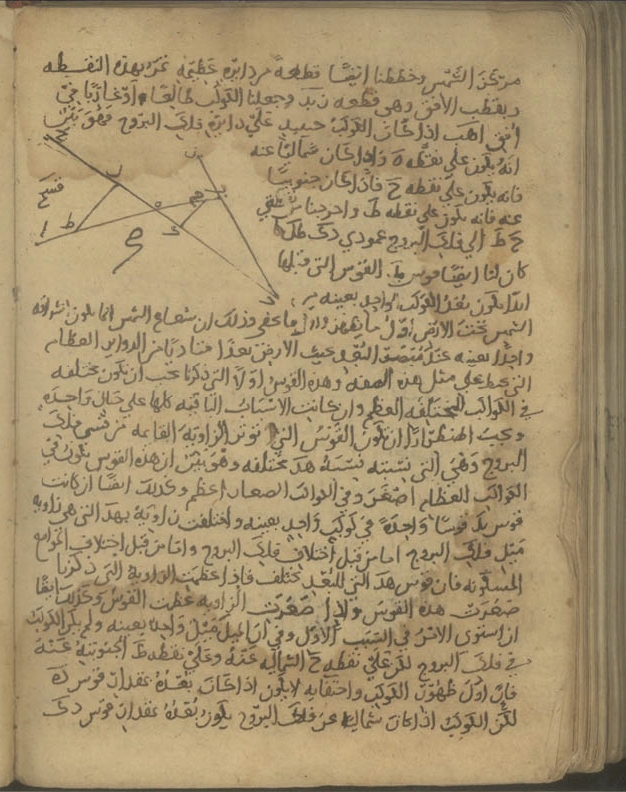 مركز الشمس وخططنا ايضًا قطعة من دايرة عظيمة تمر بهذه النقطة
وبقطب الافق وهي قطعة وجعلنا الكوكب طالعًا او غاربًا في
افق اهب اذا كان الكوكب حينيد علي دايرة فلك البروج فهو بين
انه يكون علي نقطة ه واذا كان شماليًا عنه
فانه يكون علي نقطة ح فاذا كان جنوبيًا
عنه فانه يكون علي نقطة ط واخرجنا من نقطتي
ح ط الي فلك البروج عمودي
كان لنا ايضًا قوس القوس التي قبلها
ابدًا يكون بعد الكوكب الواحد بعينه
الشمس تحت الارض اول ما يظهر وذلك ان شعاع الشمس انما يكون
واحدًا بعينه عند بعدًا متساويًا من الدواير العظام
التي تخط علي مثل هذه الصفة وهذه القوس اولا التي ذكرنا يجب ان تكون مختلفة
في الكواكب المختلفة العظم وان كانت الاسباب الباقية كلها علي حال واحدة
ويجب اضطرارًا ان تكون القوس التي توتر الزاوية القايمة من قسي فلك
البروج وهي التي نسبته نسبة هد مختلفة وهو بين ان هذه القوس تكون في
الكواكب العظام اصغر وفي الكواكب الصغار اعظم وكذلك ايضًا ان كانت
قوس قوسًا واحدة في كوكب واحد بعينه واختلفت زاوية التي هي زاوية
ميل فلك البروج اما من قبل اختلاف فلك البروج واما من قبل اختلاف المواضع
المسكونة فان قوس هد التي للبعد تختلف فاذا عظمت الزاوية التي ذكرنا
صغرت هذه القوس واذا صغرت الزاوية عظمت القوس وكذلك ايضًا
ان استوي الاثر في السبب الاول وفي ان الميل ميل واحد بعينه ولم يكن الكوكب
في فلك البروج لكن علي نقطة ح الشمالية عنه وعلي نقطة ط الجنوبية عنه
فان اول ظهور الكوكب واختفايه لا يكون اذا كان بعده بمقدار قوس ده
لكن الكوكب اذا كان شماليًا عن فلك البروج يكون بعده بمقدار قوس دك